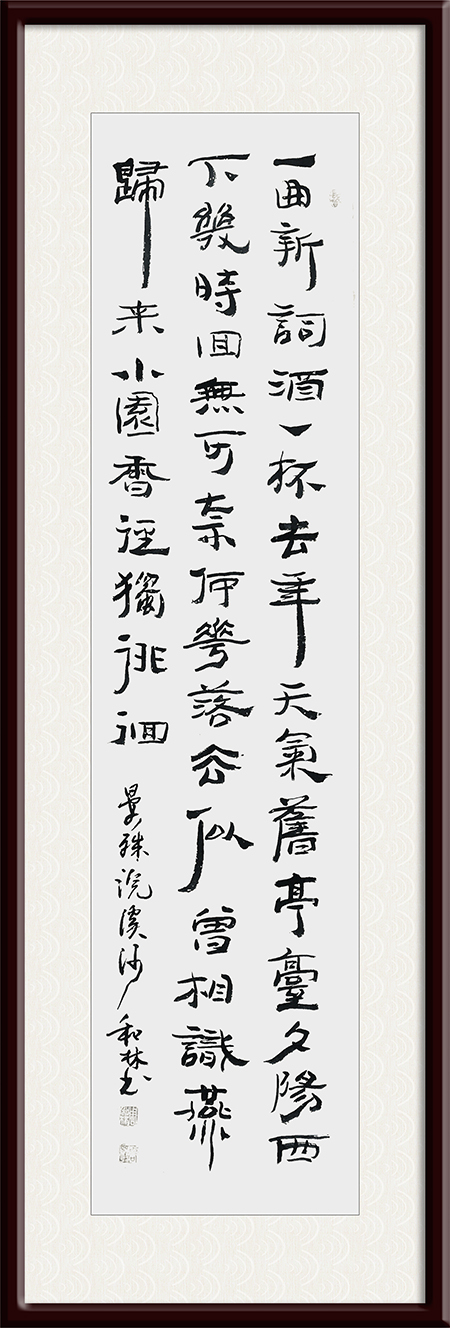 一曲新詞酒一杯去年天氣舊亭臺夕陽西
下幾時回無可奈何花落去似曾相識燕
歸来小園香徑獨徘徊
晏殊浣溪沙 和林书